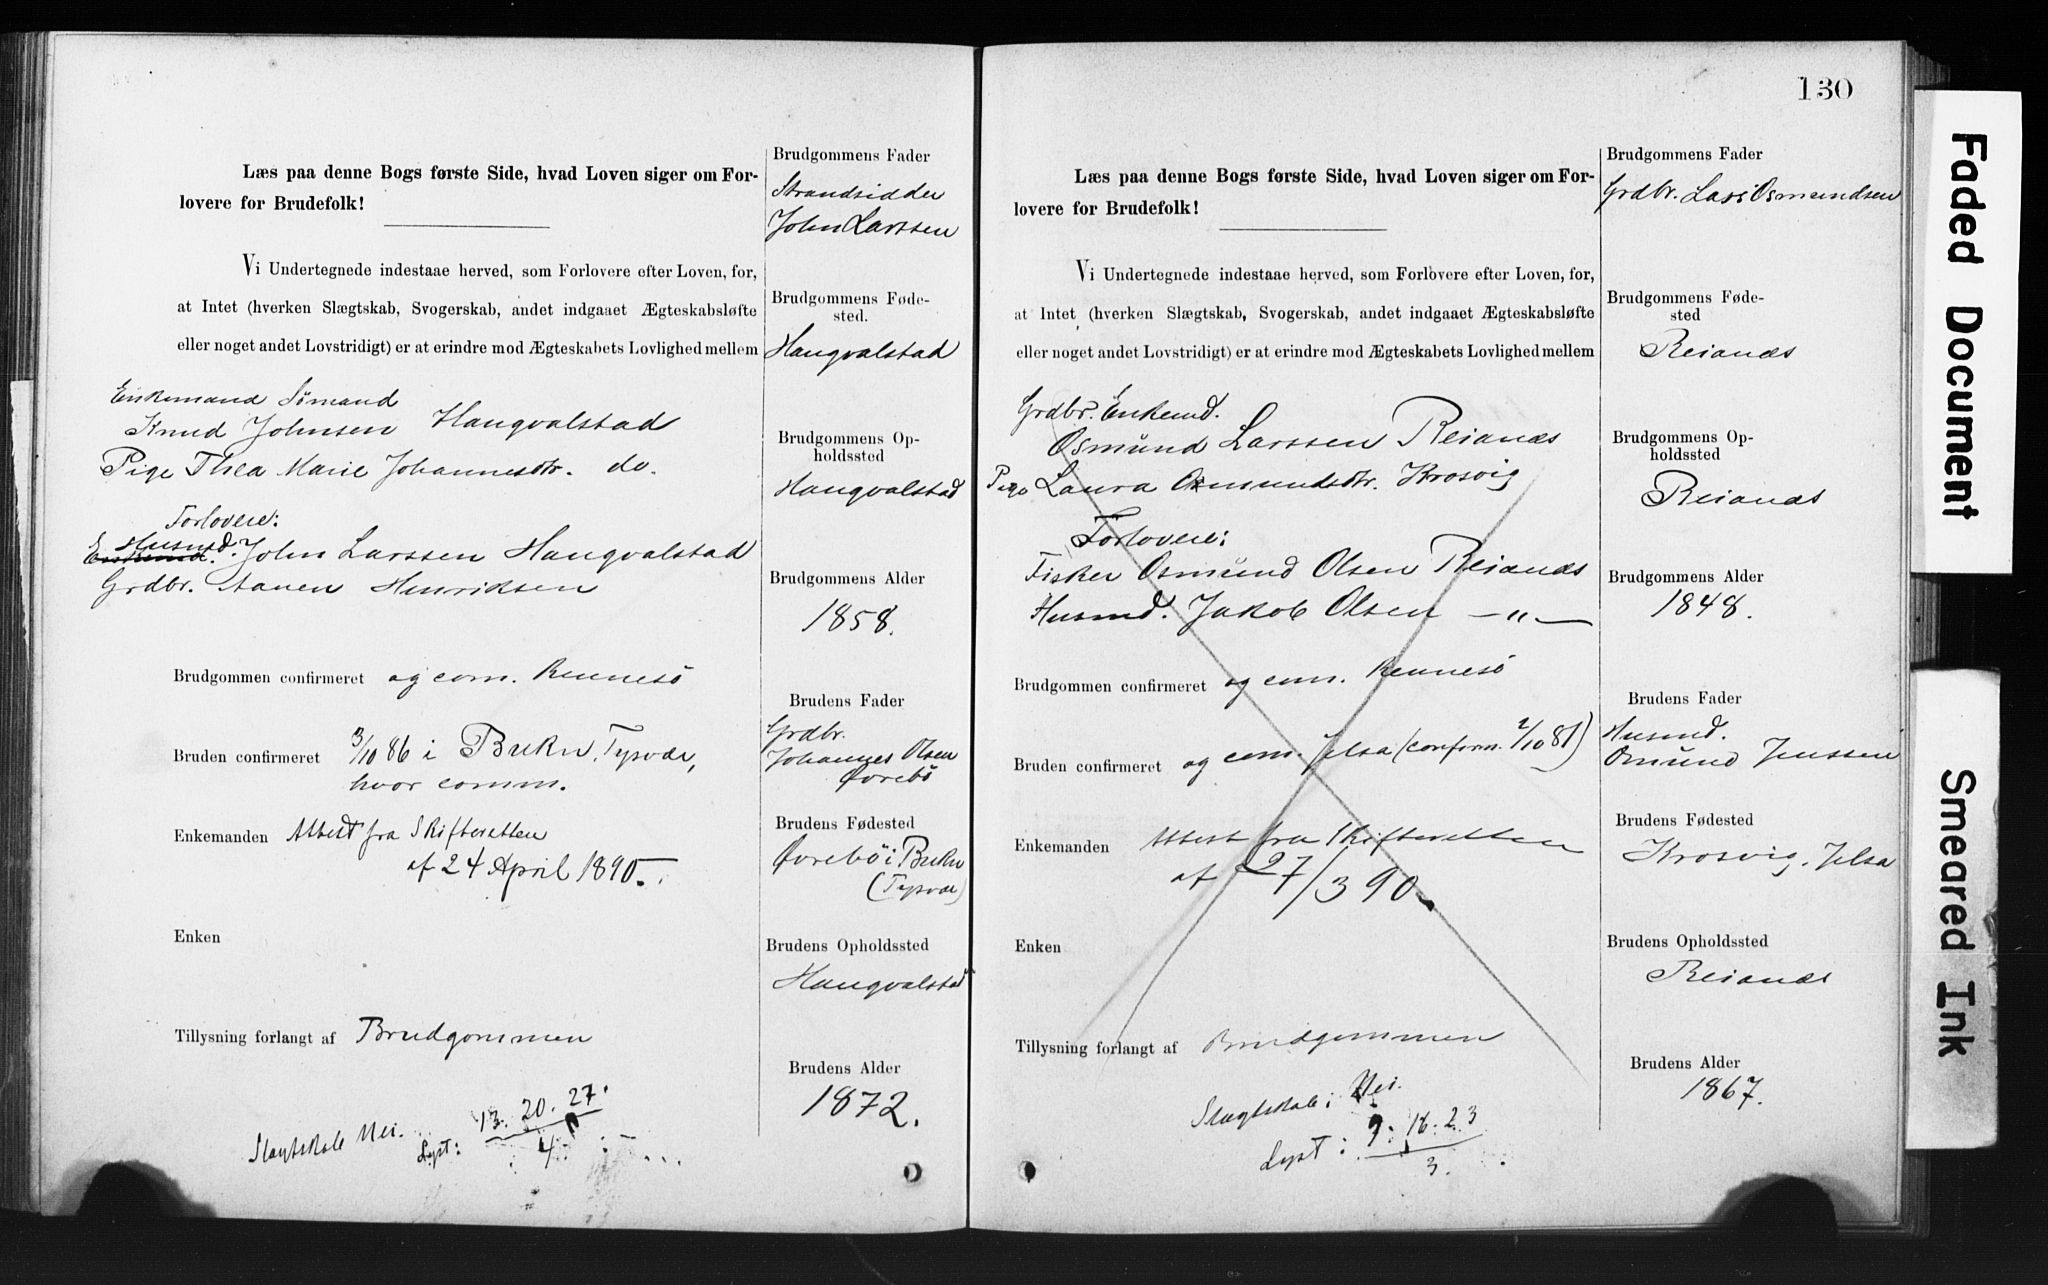 Læs paa denne Bogs første Side, hvad Loven siger om For-
lovere for Brudefolk!
Vi Undertegnede indestaae herved, som Forlovere efter Loven, for,
at Intet (hverken Slægtskab, Svogerskab, andet indgaaet Ægteskabsløfte
eller noget andet Lovstridigt) er at erindre mod Ægteskabets Lovlighed mellem
Enkemand Sömand
Knud Johnsen Haugvalstad
Pige Thea Marie Johannesdtr. do.
Forlovere:
Husmd.
Enkemd. John Larssen Haugvalstad
Grdbr. Aanen Henriksen
Brudgommen confirmeret og com. Rennesö
Bruden confirmeret 3/10 86 i Bukn, Tysvær,
hvor comm.
Enkemanden Attest fra Skifteretten
af 24 April 1890.
Enken
Tillysning forlangt af Brudgommen
Slægtskab Nei. Lyst: 13. 20. 27.
4.
Brudgommens Fader
Strandsidder
John Larssen
Brudgommens Føde-
sted.
Haugvalstad
Brudgommens Op-
holdssted
Haugvalstad
Brudgommens Alder
1858.
Brudens Fader
Grdbr.
Johannes Olsen
Övrebö
Brudens Fødested
Övrebö i Bukn
(Tysvær)
Brudens Opholdssted
Haugvalstad
Brudens Alder
1872.
130
Læs paa denne Bogs første Side, hvad Loven siger om For-
lovere for Brudefolk!
Vi Undertegnede indestaae herved, som Forlovere efter Loven, for,
at Intet (hverken Slægtskab, Svogerskab, andet indgaaet Ægteskabsløfte
eller noget andet Lovstridigt) er at erindre mod Ægteskabets Lovlighed mellem
Grdbr. Enkemd.
Osmund Larssen Reianes
Pige Laura Osmundsdtr. Krosvig
Forlovere:
Fisker Osmund Olsen Reianes
Husmd. Jakob Olsen — " —
Brudgommen confirmeret og com. Rennesö
Bruden confirmeret og com. Jelsa (confirm. 2/10 81)
Enkemanden Attest fra Skifteretten
af 27/3 90.
Enken
Tillysning forlangt af Brudgommen
Slægtskab: Nei.
Lyst: 9. 16. 23
3.
Brudgommens Fader
Grdbr. Lars Osmundsen
Brudgommens Føde-
sted
Reianes
Brudgommens Op-
holdssted
Reianes
Brudgommens Alder
1848.
Brudens Fader
Husmd.
Omund Jenssen
Brudens Fødested
Krosvig, Jelsa
Brudens Opholdssted
Reianes
Brudens Alder
1867.
Faded Document
Smeared Ink